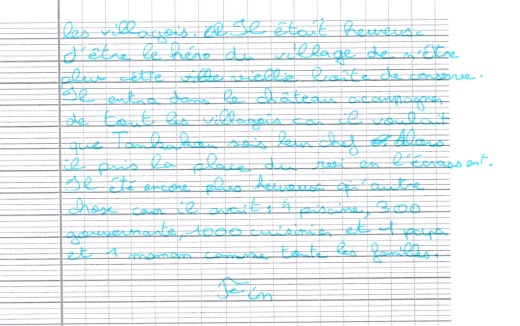 les villageois. Il était heureuse
d'être le héro du village de n'être
plus cette ville vieille boîte de conserve.
Il entra dans le château acompagner
de tout les villageois car il voulait
que sois leur chef Alors
il pris la place du roi en l'écrassent.
Il été encore plus heureux qu'autre
chose car il avait : 4 piscine, 300
gouvernante, 1000 cuisinier et 1 papa
et 1 maman comme toute les familles.
Fin